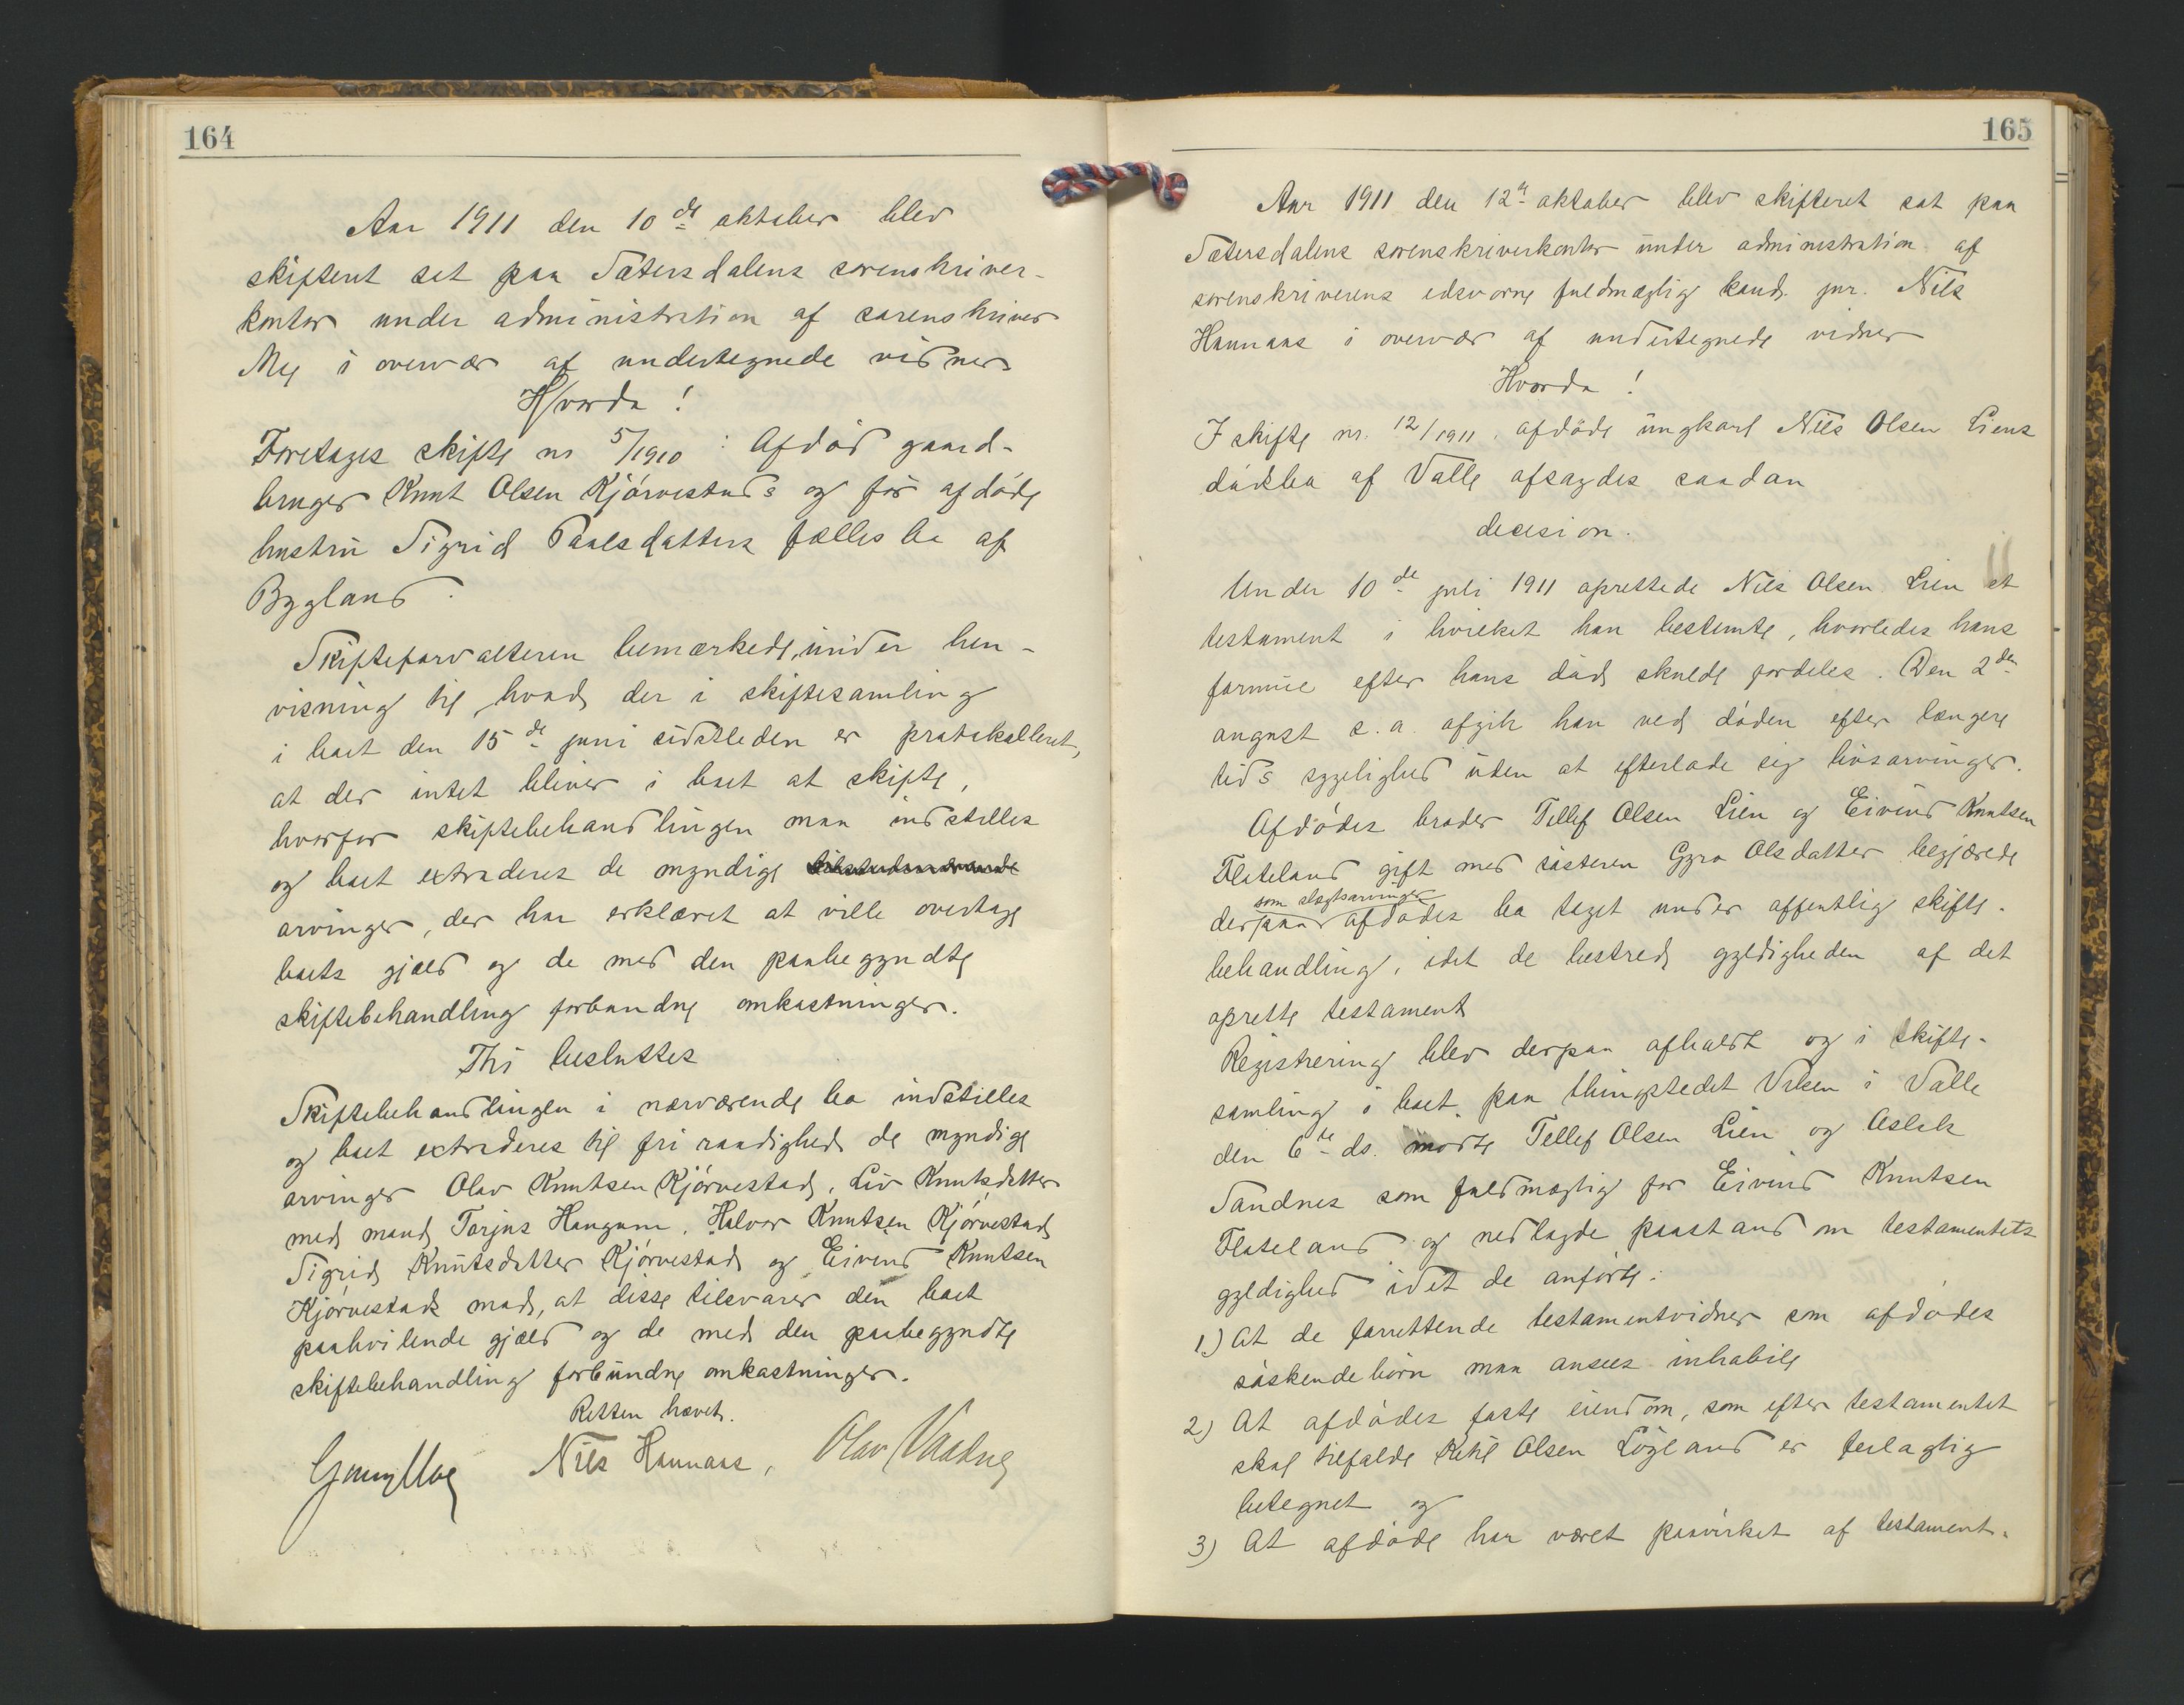 164
Aar 1911 den 10de oktober blev
skifteret sat paa Sætersdalens sorenskriver-
kontor under administration af sorenskriver
Moe i overvær af undertegnede vidner
Hvorda!
Foretages skifte nr 5/1910: Afdød gaard-
bruger Knut Olsen Kjørvestads og før afdøde
hustru Sigrid Paalsdatters fællesbo af
Bygland.
Skifteforvalteren bemærkede, under hen-
visning til hvad der i skiftesamling
i boet den 15de juni sidstleden er protokolleret,
at der intet bliver i boet at skifte,
hvorfor skiftebehandlingen maa indstilles
og boet extraderes de myndige
arvinger, der har erklæret at ville overtage
boets gjæld og de med den paabegyndte
skiftebehandling forbundne omkostninger.
Thi besluttes
Skiftebehandlingen i nærværende bo indstilles
og boet extraderes til fri raadighed de myndige
arvinger Olav Knutsen Kjørvestad, Liv Knutsdatter
med mand Torjus Haugum, Halvor Knutsen Kjørvestad
Sigrid Knutsdatter Kjørvestad og Eivind Knutsen
Kjørvestad mod, at disse tilsvarer den boet
paahvilende gjæld og de med den paabegyndte
skiftebehandling forbundne omkostninger.
Retten hævet.
Nils Hannaas, Olav
165
Aar 1911 den 12te oktober blev skifteret sat paa
Sætersdalens sorenskriverkontor under administration af
sorenskriverens edsvorne fuldmægtig kand. jur. Nils
Hannaas i overvær af undertegnede vidner
Hvorda!
I skifte nr. 12/1911, afdøde ungkarl Nils Olsen Liens
dødsbo af Valle afsagdes saadan
decision.
Under 10de juli 1911 oprettede Nils Olsen Lien et
testament i hvilket han bestemte, hvorledes hans
formue efter hans død skulde fordeles. Den 2den
august s. a. afgik han ved døden efter længere
tids sygelighed uden at efterlade sig livsarvinger.
Afdødes broder Tellef Olsen Lien og Eivind Knutsen
Flateland gift med søsteren Gyro Olsdatter begjærede
som slægtsarvinger
derpaa afdødes bo taget under offentlig skifte-
behandling, idet de bestred gyldigheden af det
oprette testament
Registrering blev derpaa afholdt og i skifte-
samling i boet paa thingstedet Viken i Valle
den 6te ds. mødte Tellef Olsen Lien og Aslak
Sandnes som fuldmægtig for Eivind Knutsen
Flateland og nedlagde paastand om testamentets
gyldighed idet de anførte:
1.) At de forrettende testamentvidner som afdødes
søskendebørn maa ansees inhabile
2) At afdødes faste eiendom, som efter testamentet
skal tilfalde Ketil Olsen Løyland er feilagtig
betegnet og
3) At afdøde har været paavirket af testament-